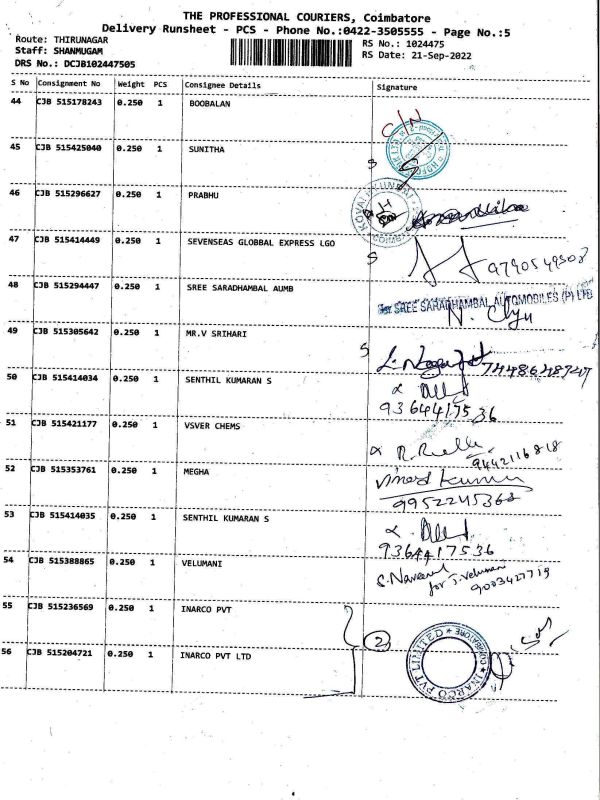 THE PROFESSIONAL COURIERS, Coimbatore
Delivery Runsheet - PCS - Phone No.:0422-3505555 - Page No.:5
Route: THIRUNAGAR
Staff: SHANMUGAM
DRS No.: DCJB102447505
RS No.: 1024475
RS Date: 21-Sep-2022
S No Consignment No Weight PCS Consignee Details Signature
44 CJB 515178243 0.250 1 BOOBALAN
C/N
45 CJB 515425040 0.250 1 SUNITHA
S
46 CJB 515296627 0.250 1 PRABHU
47 CJB 515414449 0.250 1 SEVENSEAS GLOBBAL EXPRESS LGO
S
9790549308
48 CJB 515294447 0.250 1 SREE SARADHAMBAL AUMB
For SREE SARADHAMBAL AUTOMOBILES (P) LTD
49 CJB 515305642 0.250 1 MR.V SRIHARI
S
50 CJB 515414034 0.250 1 SENTHIL KUMARAN S
9364417536
51 CJB 515421177 0.250 1 VSVER CHEMS
9442116818
52 CJB 515353761 0.250 1 MEGHA
9952245368
53 CJB 515414035 0.250 1 SENTHIL KUMARAN S
9364417536
54 CJB 515388865 0.250 1 VELUMANI
S. Naveen
for
9003427719
55 CJB 515236569 0.250 1 INARCO PVT
2
56 CJB 515204721 0.250 1 INARCO PVT LTD
INARCO PVT LIMITED
COIMBATORE